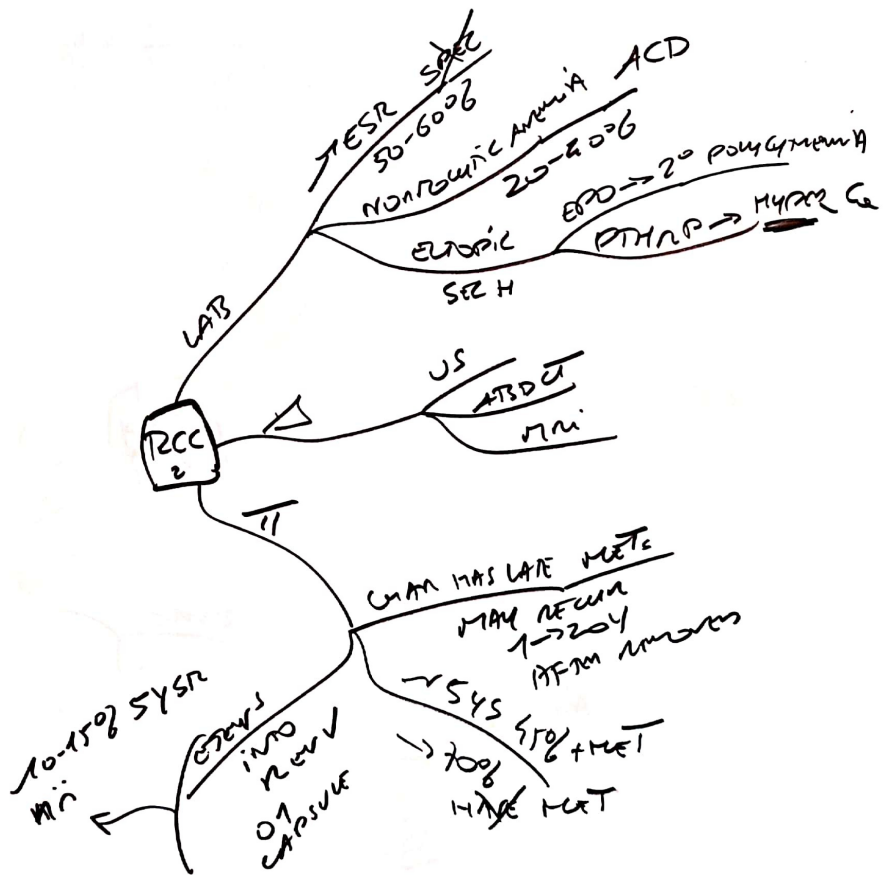 ↑ESR SPEC
50-60%
NONHOLYTIC ANEMIA ACD
20-40%
ECTOPIC
SEC H
EPO → 2° POLYCYTHEMIA
PTHRP → HYPER Ca
LAB
RCC
2
Δ
US
ABD CT
MRI
CHAR HAS LATE METs
MAY RECUR
1→20Y
AFTER REMOVED
~ 5YS 45% + MET
→ 70%
HAVE MET
EXTENDS
INTO
RENV
OR
CAPSULE
10-15% 5YSR